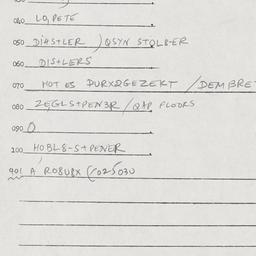 040 LO, PETE
050 DIASTLER / QSYN STOLB-ER
060 DISTLERS
070 HOT ES DURXQGEZEKT / DEMBRE
080 ZEGLSTPENBR / QAP FLOORS
090 O
100 HOBL8-STPENER
901 A ROBUBX (/025030